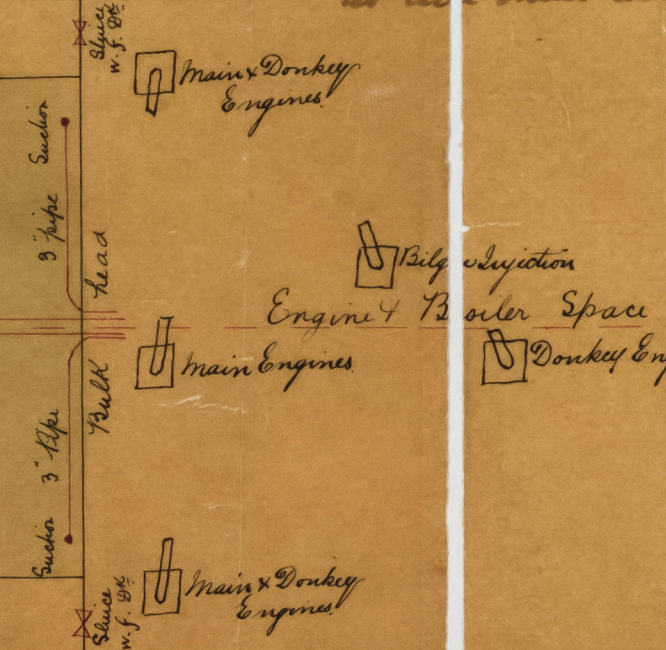 Sluice
W. f. DK
Main & Donkey
Engines.
Suction
3" pipe
head
Bilge Injection
Engine & Boiler Space
Main Engines.
Donkey En
Bulk
3" Pipe
Suction
Main & Donkey
Engines.
Sluice
W. f. DK